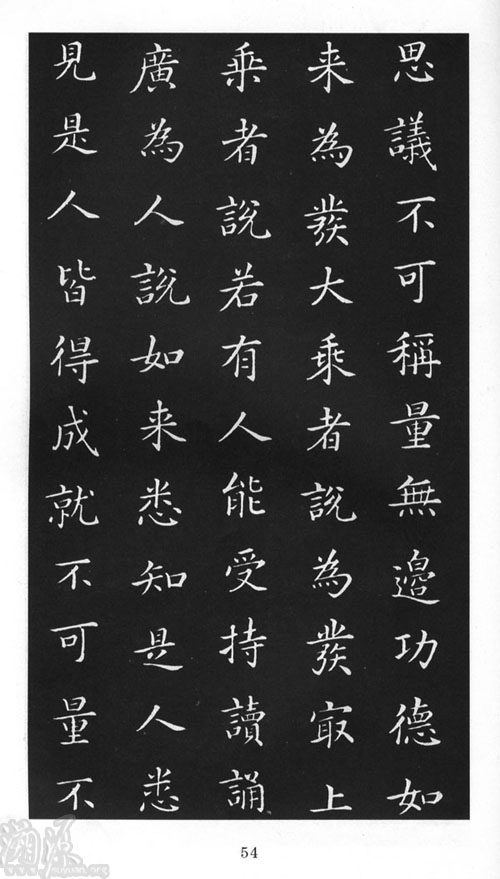 思議不可稱量無邉功德如
来為發大乘者說為發㝡上
乗者說若有人能受持讀誦
廣為人說如来悉知是人悉
見是人皆得成就不可量不
54